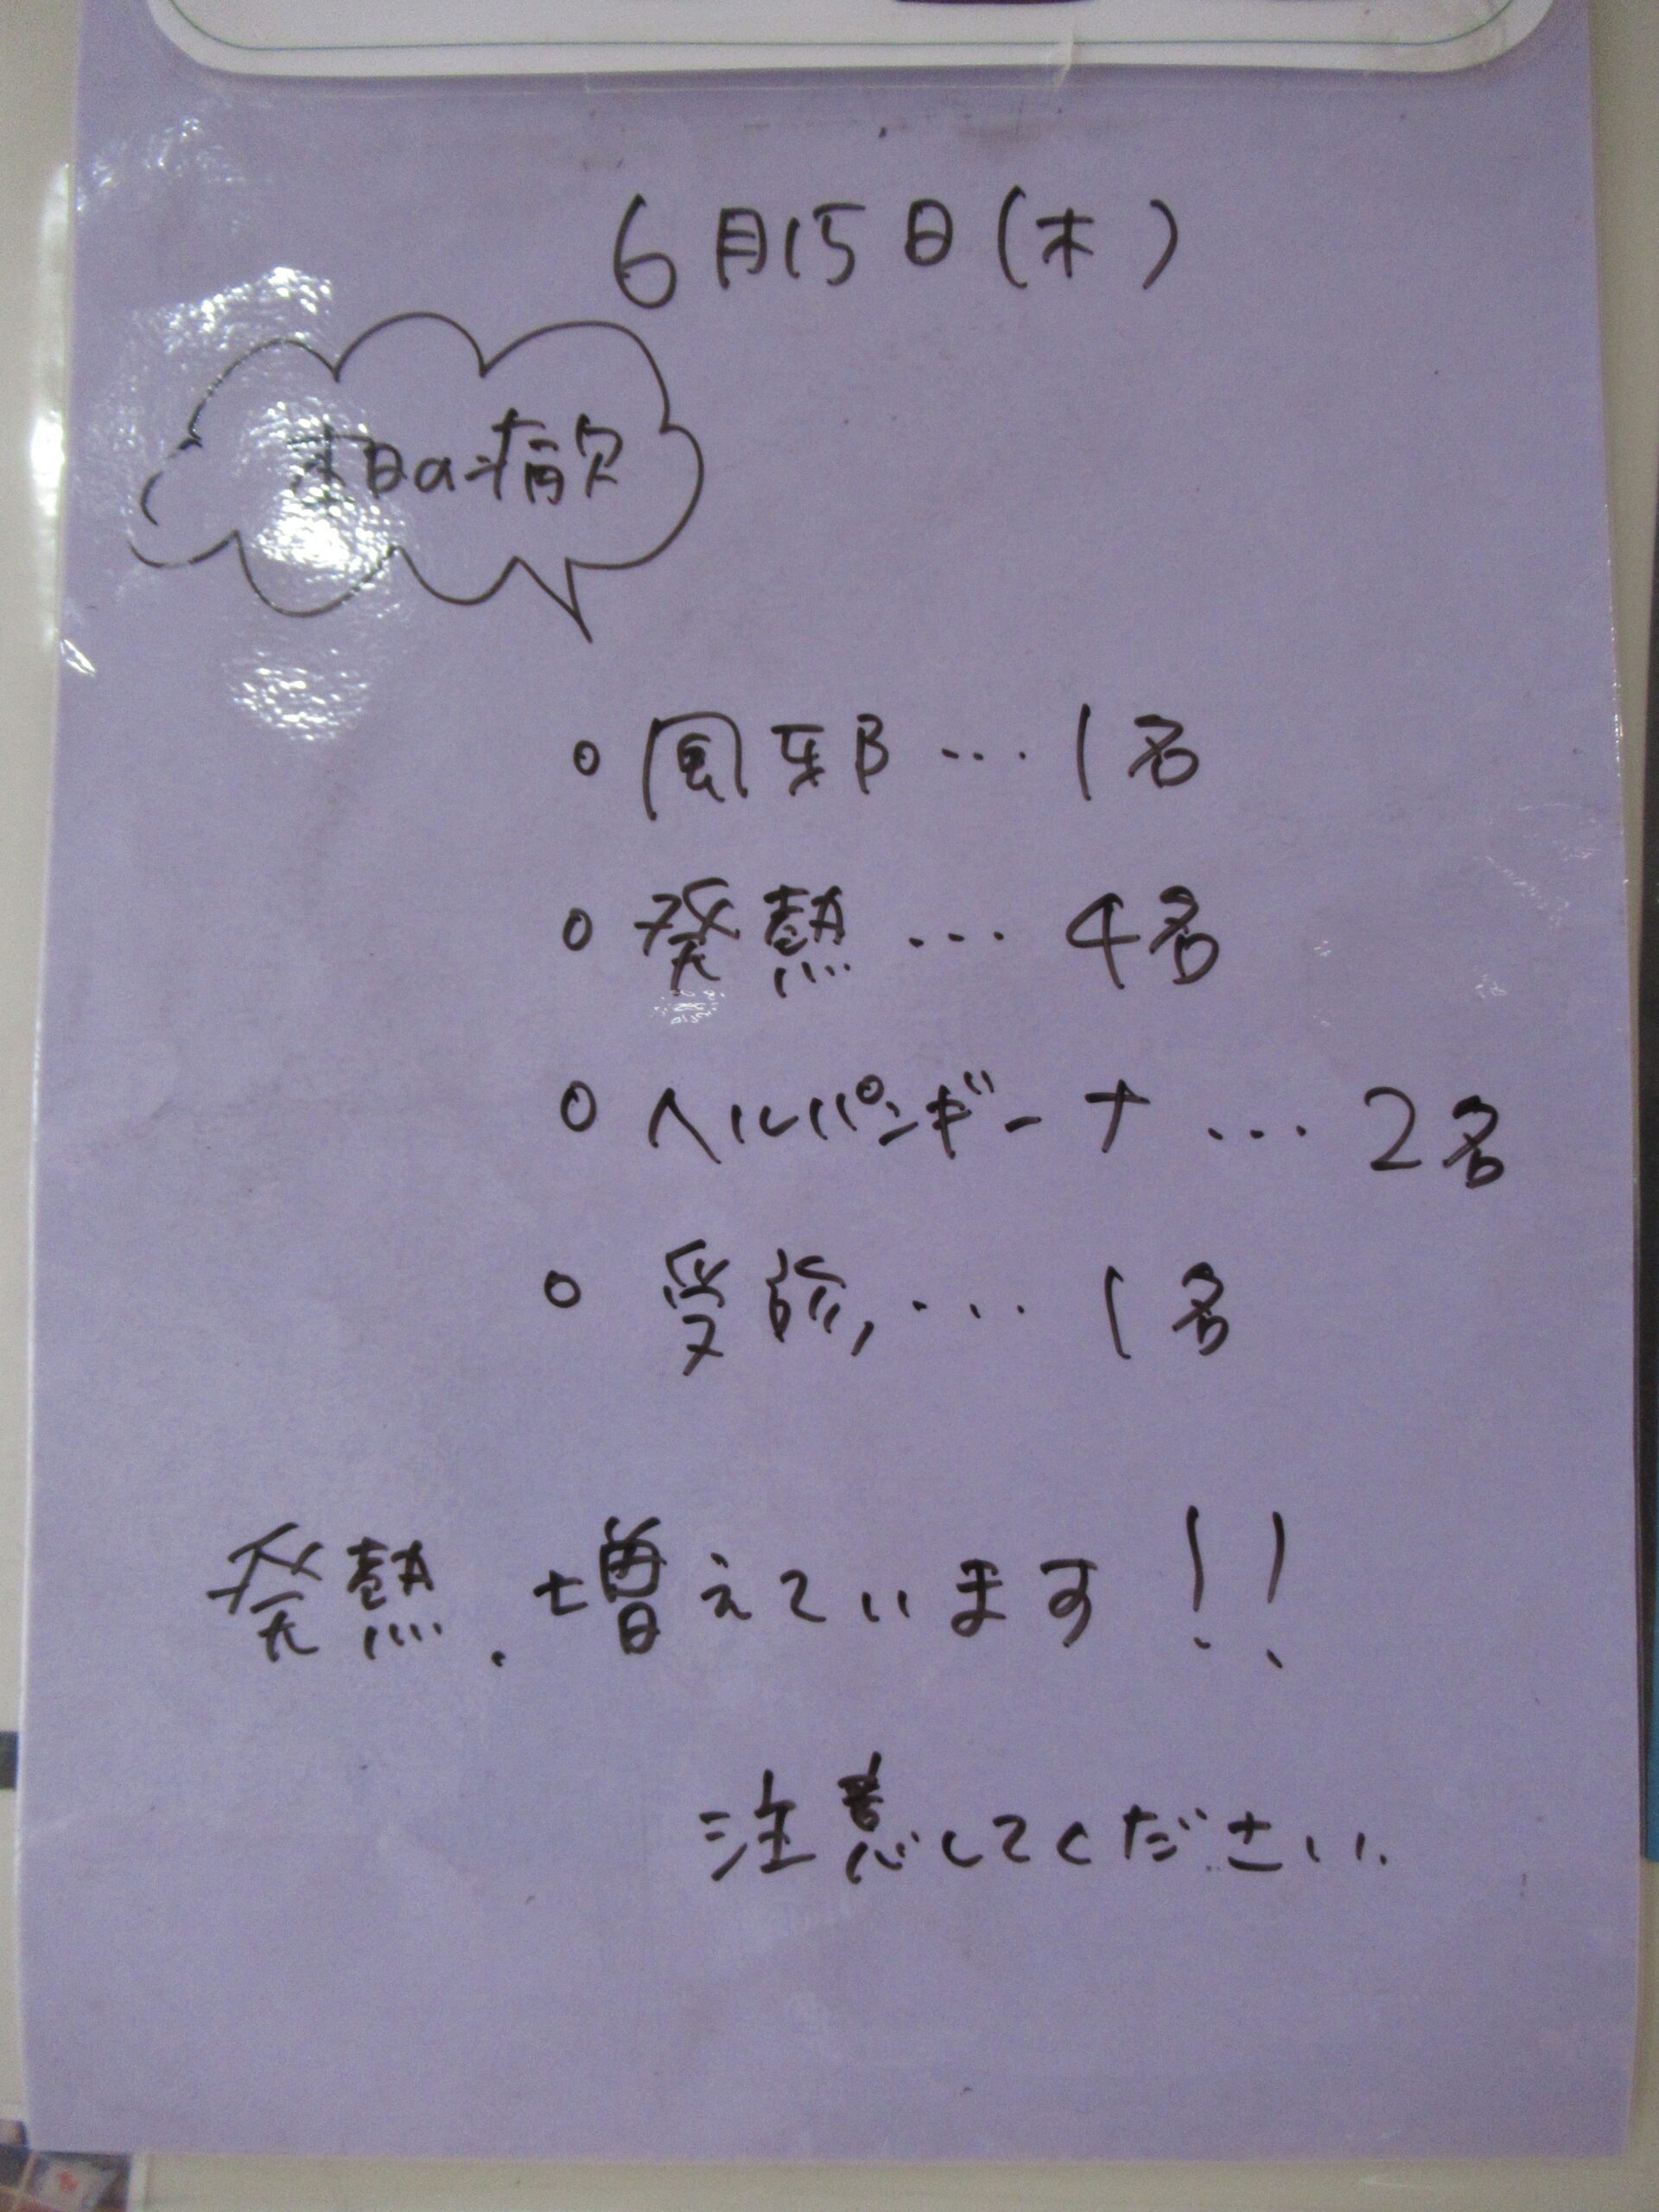 6月15日(木)
本日の病欠
○ 風邪 … 1名
○ 発熱 … 4名
○ ヘルパンギーナ … 2名
○ 受診 … 1名
発熱、増えています!!
注意してください.